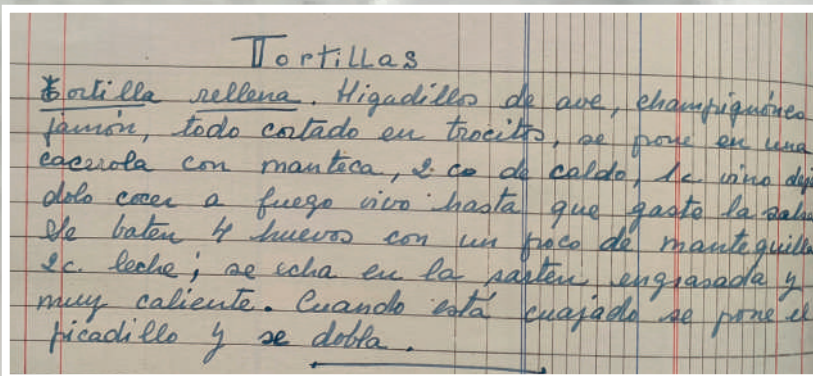 Tortillas
Tortilla rellena. Higadillos de ave, champiguónes
jamón, todo cortado en trocitos, se pone en una
cacerola con manteca, 2 co de caldo, 1c vino dejan
dolo cocer a fuego vivo hasta que gaste la salsa
Se baten 4 huevos con un poco de mantequilla
2c. leche; se echa en la sarten engrasada y
muy caliente. Cuando está cuajado se pone el
picadillo y se dobla.